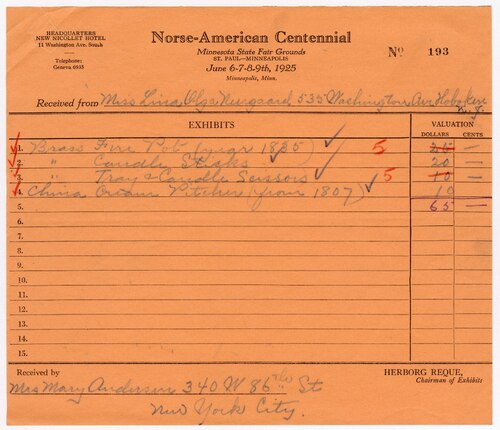 HEADQUARTERS
NEW NICOLLET HOTEL
11 Washington Ave. South
Telephone:
Geneva 6935
Norse-American Centennial
Minnesota State Fair Grounds
ST. PAUL—MINNEAPOLIS
June 6-7-8-9th, 1925
Minneapolis, Minn.
No 193
Received from Miss Lina Olga Neergaard, 535 Washington Ave Hoboken
N.J.
EXHIBITS
VALUATION
DOLLARS CENTS
1. Brass Fire Pot (year 1825) 5 25 —
2. " Candle Sticks 20 —
3. " Tray & Candle Scissors 5 10 —
4. China Cream Pitcher (from 1807) 10
5. 65 —
6.
7.
8.
9.
10.
11.
12.
13.
14.
15.
Received by
HERBORG REQUE,
Chairman of Exhibits
Mrs Mary Anderson 340 W 86th St
New York City.